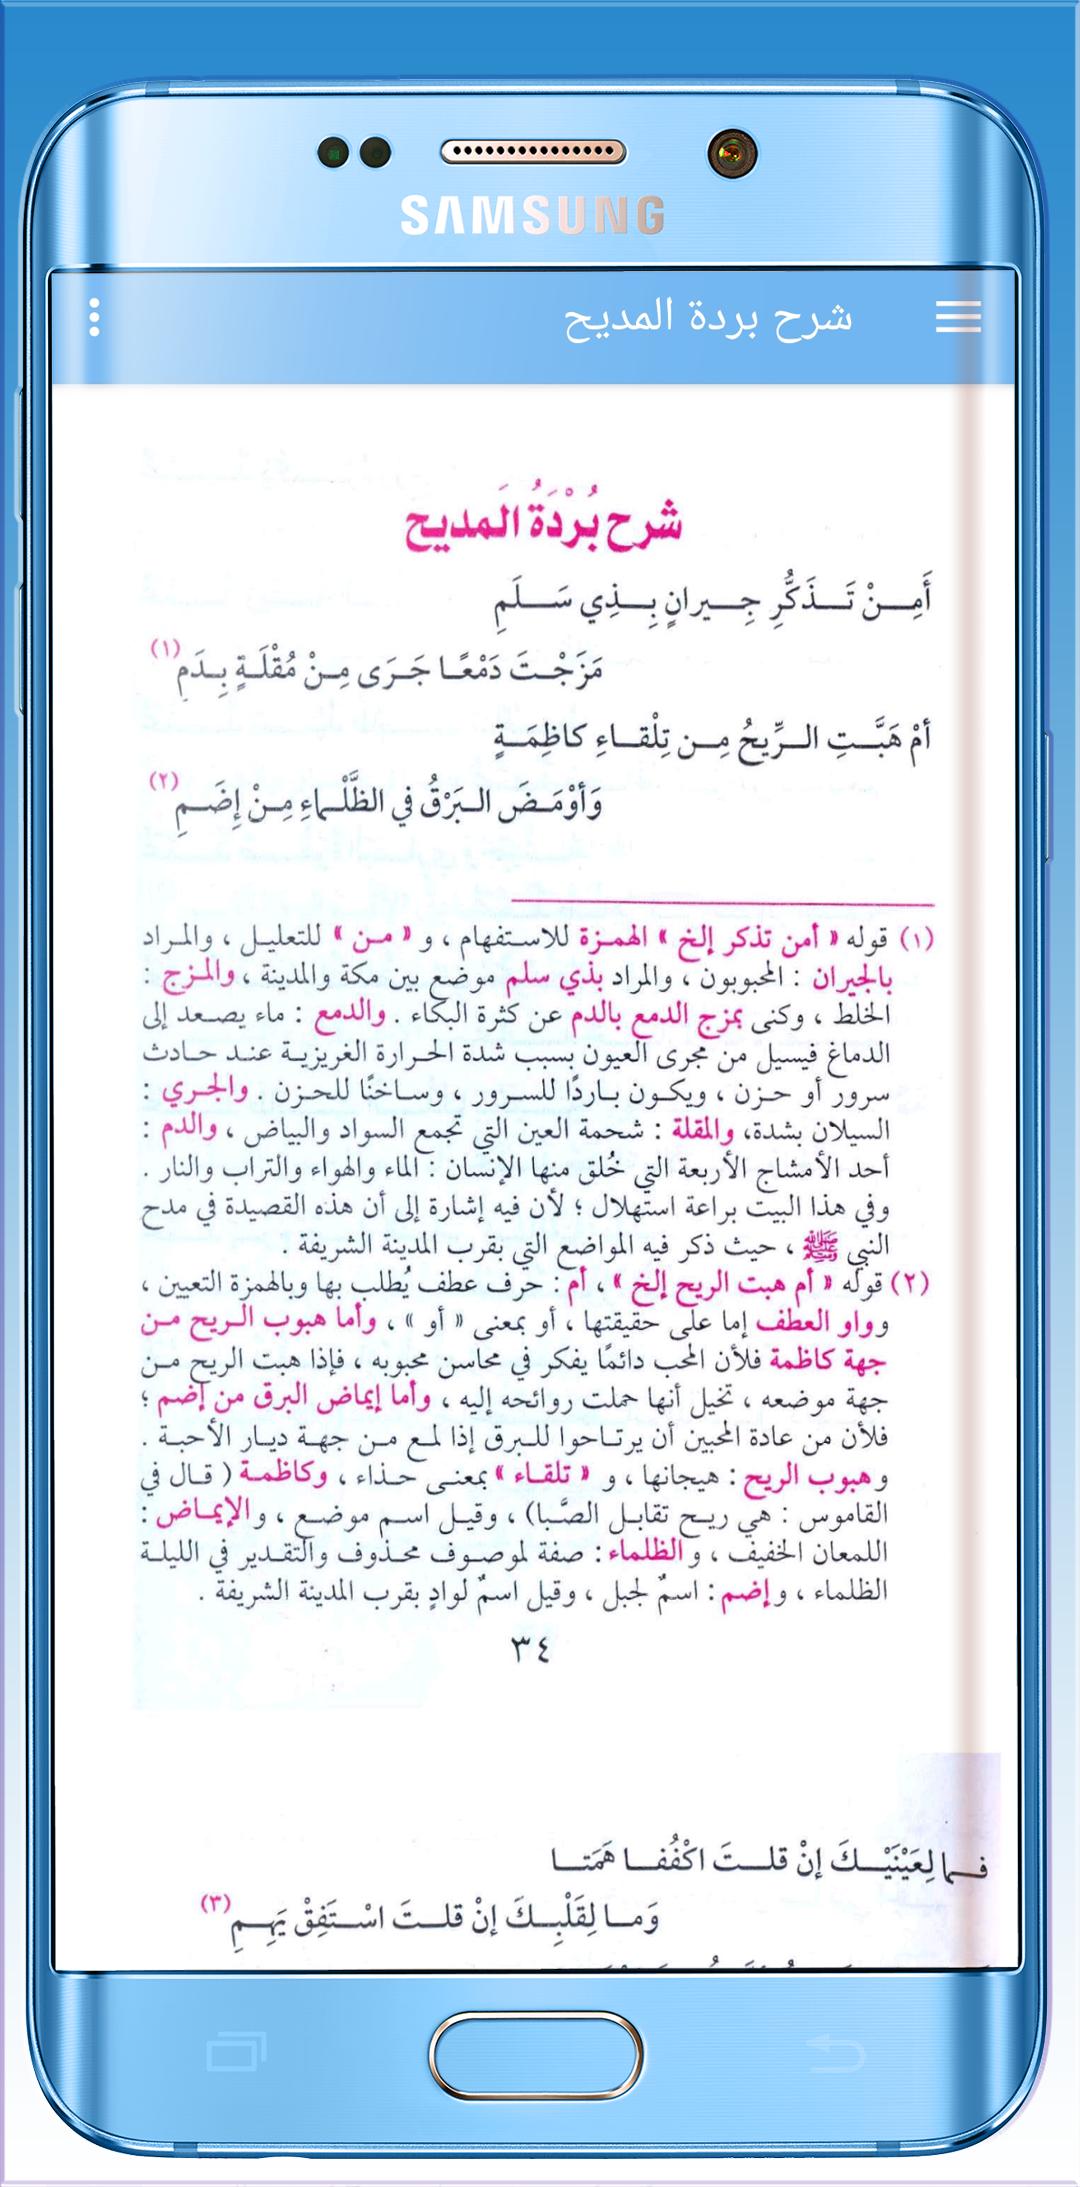 SAMSUNG
شرح بردة المديح
شرح بُرْدَةُ المَديح
أَمِـــنْ تَـــذَكُّرِ جِـــيرانٍ بِـــذِي سَـــلَمِ
مَزَجْـتَ دَمْعًـا جَـرَى مِـنْ مُقْلَـةٍ بِـدَمِ (١)
أمْ هَبَّـــتِ الـــرِّيحُ مِـــن تِلْقـــاءِ كاظِمَـــةٍ
وَأوْمَـضَ الـبَرْقُ في الظَّلْـماءِ مِـنْ إِضَـمِ (٢)
(١) قوله « أمن تذكر إلخ » الهمزة للاستفهام ، و « مـن » للتعليـل ، والمـراد
بالجيران : المحبوبون ، والمراد بذي سلم موضع بين مكة والمدينة ، والمـزج :
الخلط ، وكنى بمزج الدمع بالدم عن كثرة البكاء . والدمع : ماء يصـعد إلى
الدماغ فيسيل من مجرى العيون بسبب شدة الحـرارة الغريزيـة عنـد حـادث
سرور أو حـزن ، ويكـون بـاردًا للسرور ، وسـاخنًا للحـزن . والجـري :
السيلان بشدة، والمقلة : شحمة العين التي تجمع السواد والبياض ، والدم :
أحد الأمشاج الأربعة التي خُلق منها الإنسان : الماء والهواء والتراب والنار .
وفي هذا البيت براعة استهلال ؛ لأن فيه إشارة إلى أن هذه القصيدة في مدح
النبي ﷺ ، حيث ذكر فيه المواضع التي بقرب المدينة الشريفة .
(٢) قوله « أم هبت الريح إلخ » ، أم : حرف عطف يُطلب بها وبالهمزة التعيين ،
وواو العطف إما على حقيقتها ، أو بمعنى « أو » ، وأما هبوب الـريح مـن
جهة كاظمة فلأن المحب دائمًا يفكر في محاسن محبوبه ، فإذا هبت الريح مـن
جهة موضعه ، تخيل أنها حملت روائحه إليه ، وأما إيماض البرق من إضم ؛
فلأن من عادة المحبين أن يرتـاحوا للـبرق إذا لمـع مـن جهـة ديـار الأحبـة .
وهبوب الريح : هيجانها ، و « تلقـاء » بمعنـى حـذاء ، وكاظمـة ( قـال في
القاموس : هي ريـح تقابـل الصَّبا) ، وقيـل اسـم موضـع ، والإيمـاض :
اللمعان الخفيف ، والظلماء : صفة لموصـوف محـذوف والتقـدير في الليلـة
الظلماء ، وإضم : اسمٌ لجبل ، وقيل اسمٌ لوادٍ بقرب المدينة الشريفة .
٣٤
فـــما لِعَيْنَيْـــكَ إنْ قلـــتَ اكْفُفـــا هَمَتـــا
وَمـــا لِقَلْبِـــكَ إنْ قلـــتَ اسْـــتَفِقْ يَهِـــمِ (٣)